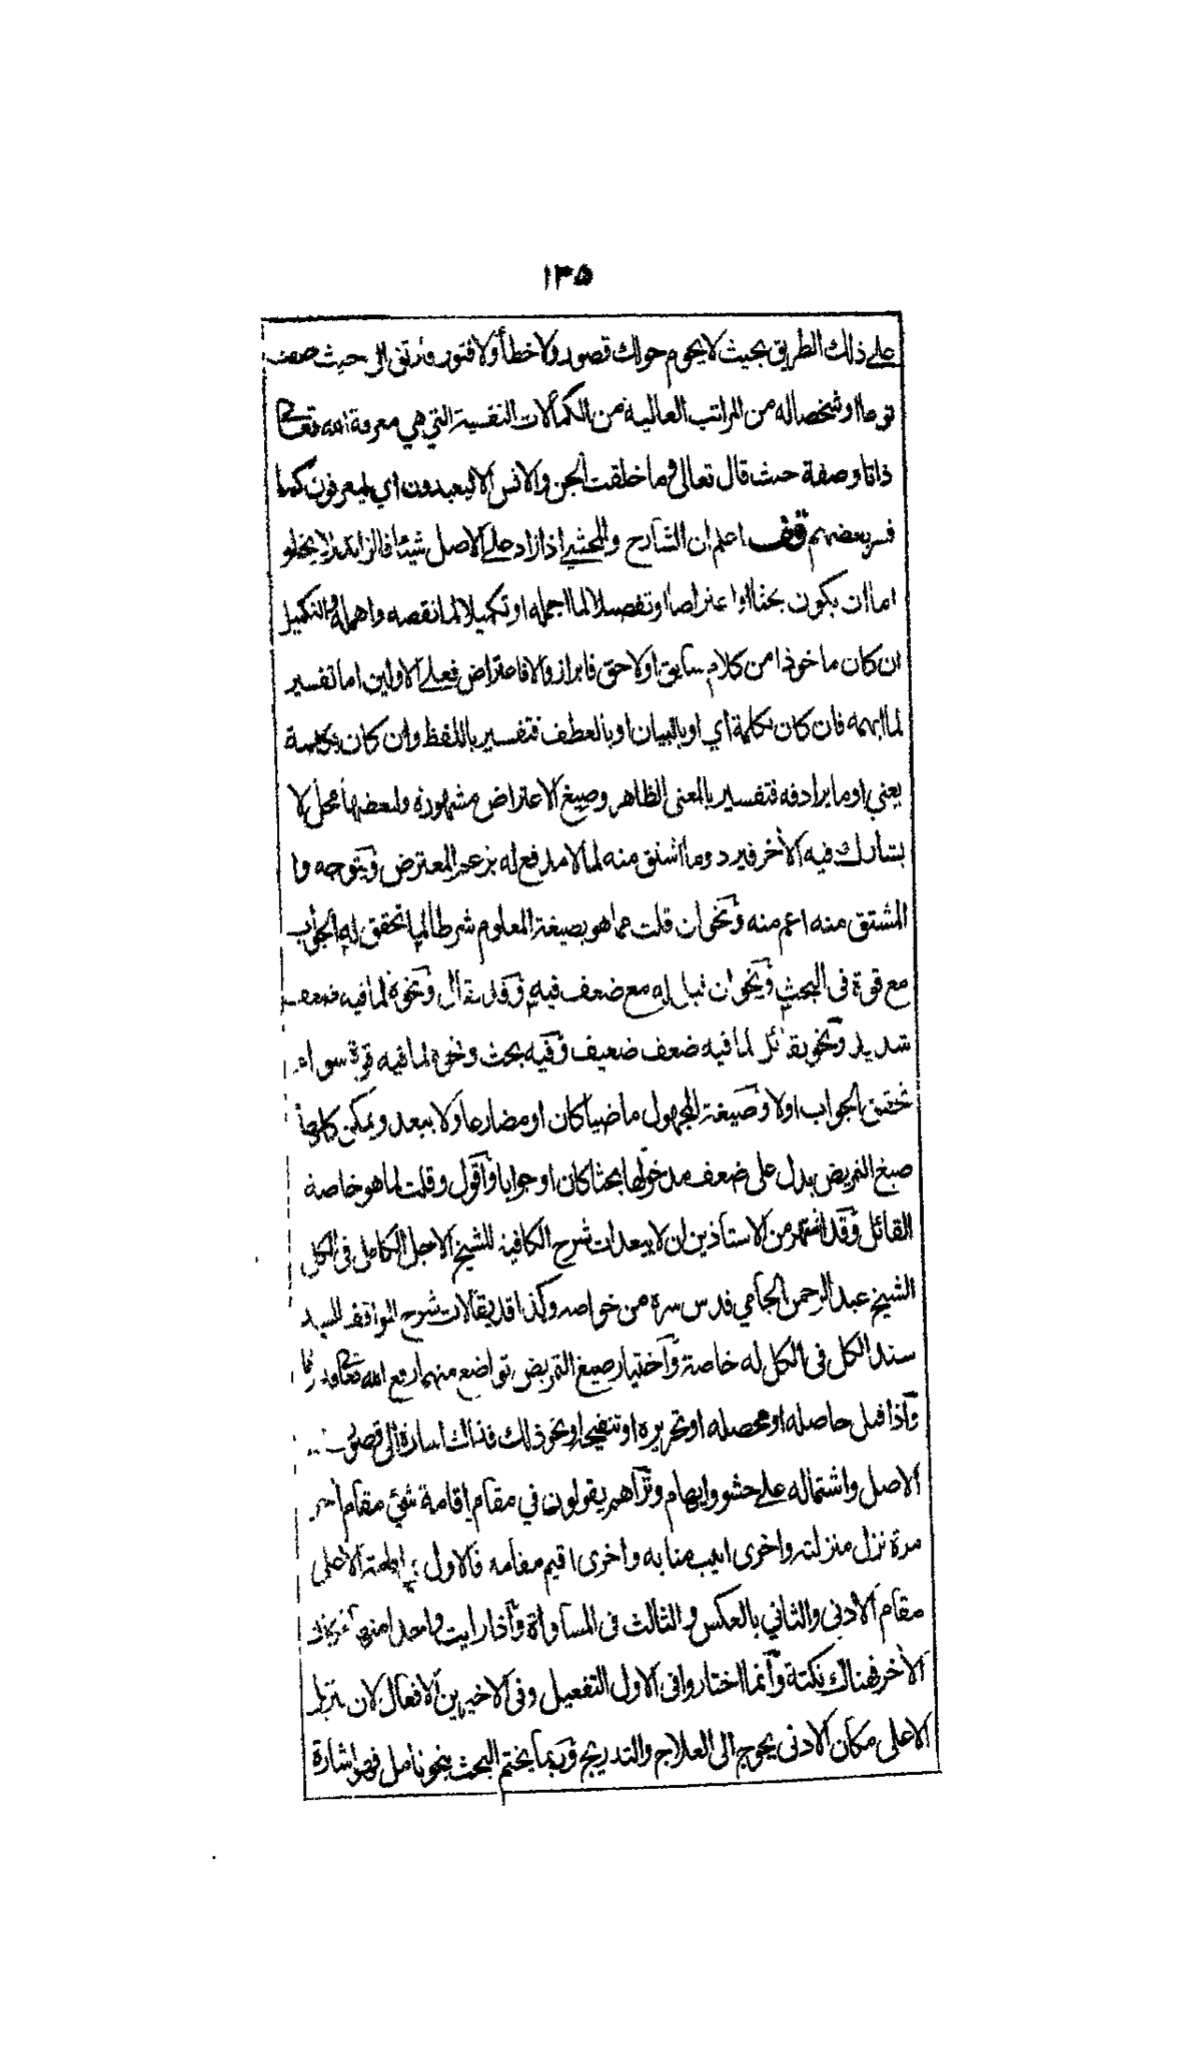 ١٣٥
على ذلك الطريق بحيث لا يحوم حولك قصور ولا خطأ ولا فتور وترتقى الى حيث
نوعا او شخصا له من المراتب العالية من الكمالات النفسية التي هي معرفة الله تعالى
ذاتا وصفة حيث قال تعالى وما خلقت الجن والانس الا ليعبدون اي ليعرفون كما
فسر بعضهم قف اعلم ان الشارح والمحشى اذا زاد على الاصل شيئا فالزائد لا يخلو
اما ان يكون بحثا او اعتراضا او تفصيلا لما اجمله او تكميلا لما نقصه واهمله والتكميل
ان كان ماخوذا من كلام سابق او لاحق فابراز والا فاعتراض فعلى الاولين اما تفسير
لما ابهمه فان كان بكلمة اي او بالبيان او بالعطف فتفسير باللفظ وان كان بكلمة
يعني او ما يرادفه فتفسير بالمعنى الظاهر وصيغ الاعتراض مشهورة ولبعضها محل لا
يشارك فيه الاخر فيرد وما اشتق منه لما لا مدفع له بزعم المعترض ويتوجه وما
المشتق منه اعم منه ونحو ان قلت مما هو بصيغة المعلوم شرطا لما تحقق له الجواب
مع قوة في البحث ونحو ان قيل له مع ضعف فيه وقد يقال ونحوه لما فيه ضعف
شديد ونحو يقال لما فيه ضعف ضعيف وفيه بحث ونحوه لما فيه قوة سواء
تحقق الجواب اولا وصيغة المجهول ماضيا كان او مضارعا ولا يبعد ويمكن كلها
صيغ التمريض يدل على ضعف مدخولها بحثا كان او جوابا واقول وقلت لما هو خاصة
القائل وقد اشتهر من الاستاذين ان لا يبعدات شرح الكافية للشيخ الاجل الكامل في الكل
الشيخ عبد الرحمن الجامي قدس سره من خواصه وكذا قد يقالات شرح المواقف للسيد
سند الكل في الكل له خاصة واختيار صيغ التمريض تواضع منهما رفع الله تعالى
واذا قيل حاصله او محصله او تحريره او تنقيحه او نحو ذلك فذاك اشارة الى قصور
الاصل واشتماله على حشو وابهام وتراهم يقولون في مقام اقامة شئ مقام اخر
مرة نزل منزلته واخرى انيب منابه واخرى اقيم مقامه فالاول في اقامة الاعلى
مقام الادنى والثاني بالعكس والثالث في المساواة واذا رايت واحدا منها
الاخر فهناك نكتة وانما اختاروا في الاول التفعيل وفي الاخيرين الافعال لان تنزيل
الاعلى مكان الادنى يحوج الى العلاج والتدريج وربما يختم البحث بنحو تامل فهو اشارة